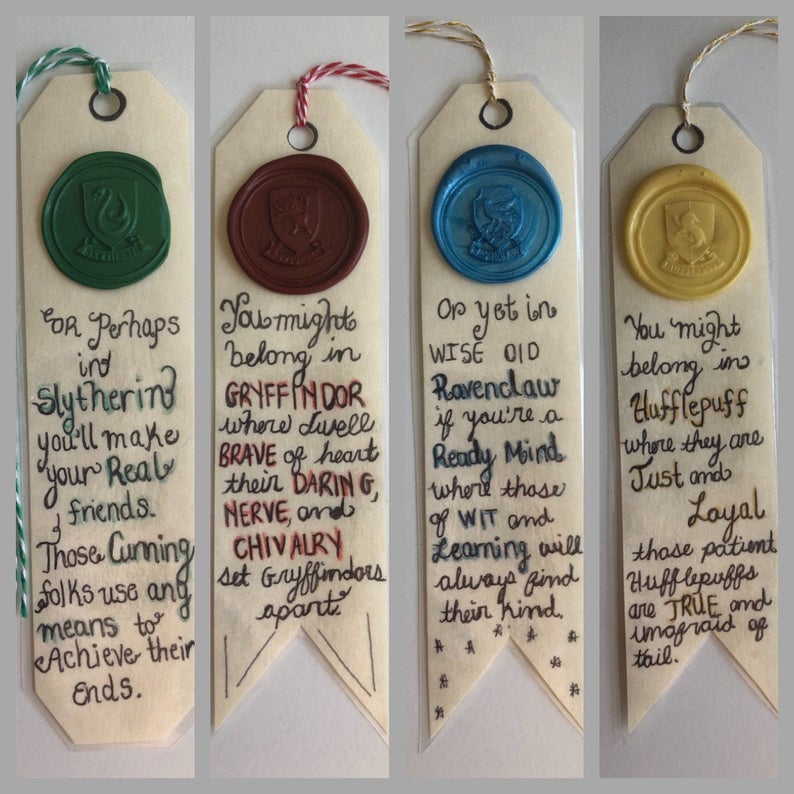 SLYTHERIN
OR Perhaps
in
Slytherin
you'll make
your Real
friends.
Those Cunning
folks use any
means to
Achieve their
Ends.
You might
belong in
GRYFFINDOR
where dwell
BRAVE of heart
their DARING,
NERVE, and
CHIVALRY
set Gryffindors
apart.
RAVENCLAW
Or yet in
WISE OlD
Ravenclaw
if you're a
Ready Mind
where those
of WIT and
Learning will
always find
their kind.
HUFFLEPUFF
You might
belong in
Hufflepuff
where they are
Just and
Loyal
those patient
Hufflepuffs
are TRUE and
unafraid of
tail.